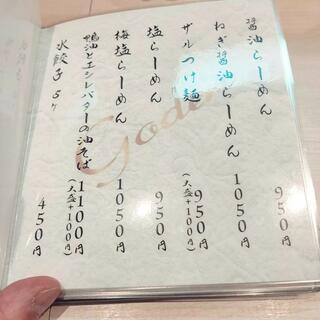 醤油らーめん 950円
ねぎ醤油らーめん 1050円
ザルつけ麺 950円
(大盛+100円)
塩らーめん 950円
梅塩らーめん 1050円
鴨油とエシレバターの油そば 1100円
(大盛+100円)
水餃子 5ヶ 450円